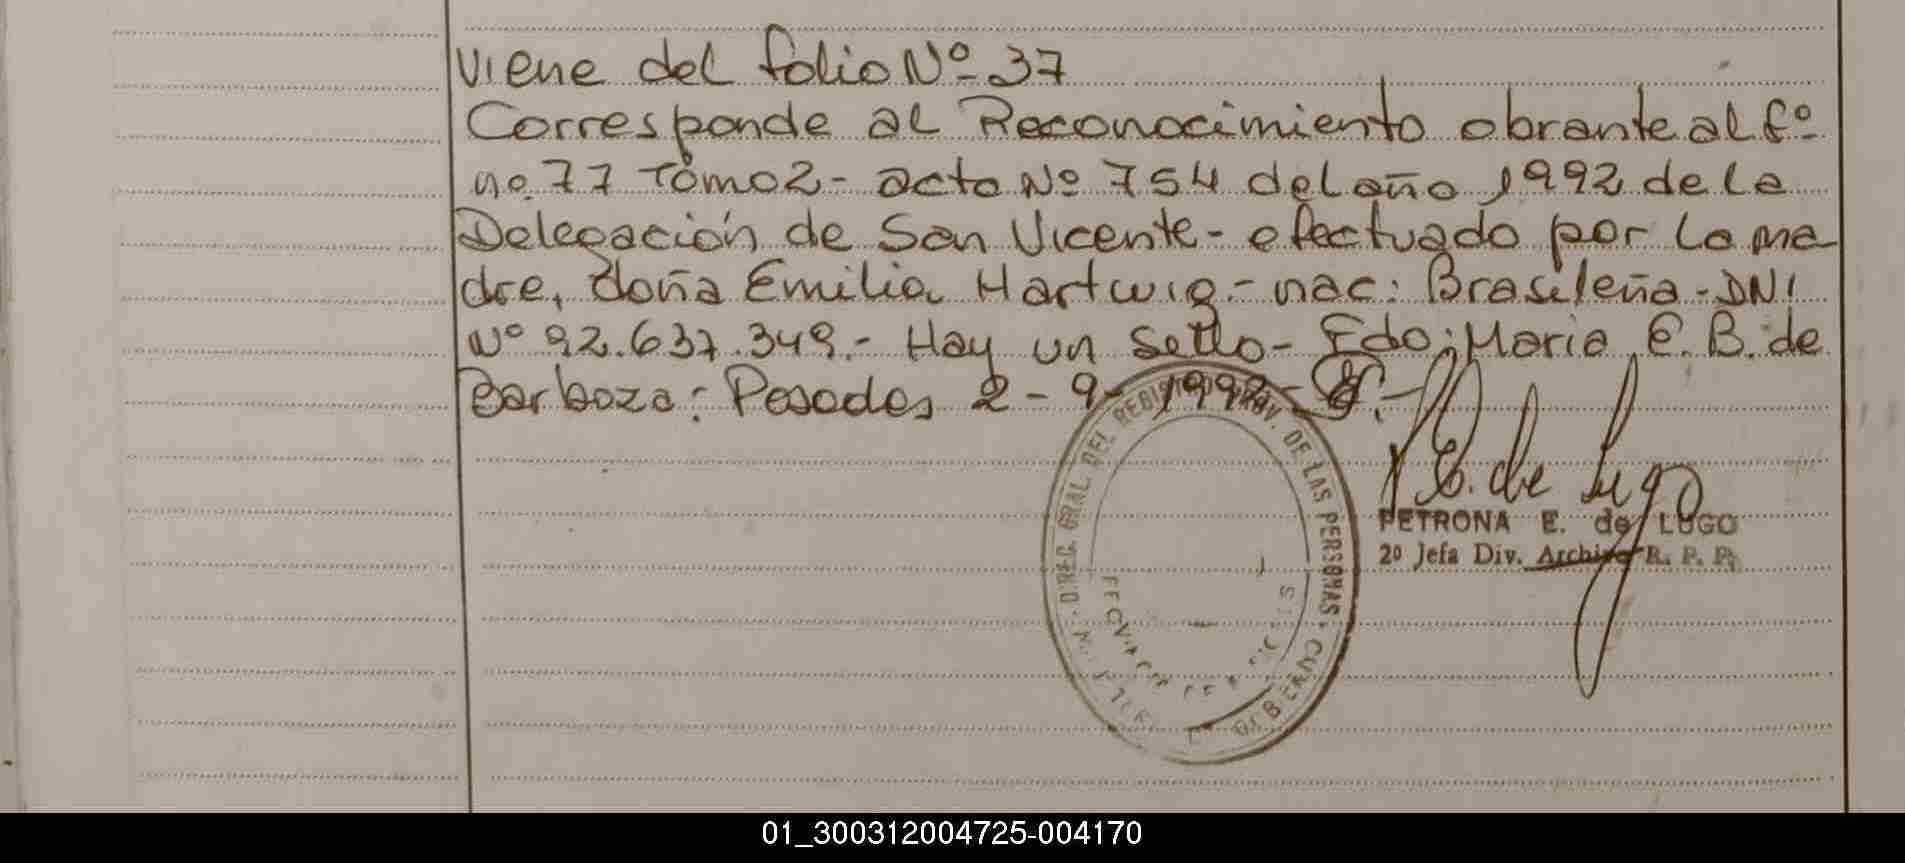 viene del folio Nº 37
Corresponde al Reconocimiento obrante al fº
nº 77 Tomo 2 - acta Nº 754 del año 1992 de la
Delegación de San Vicente - efectuado por la ma
dre, doña Emilia Hartwig.- nac: Brasileña - DNI
Nº 92.637.349.- Hay un sello - Fdo: Maria E. B. de
Barboza: Posadas, 2 - 9 - 1992 -
DIREC. GRAL. DEL REGIST PROV. DE LAS PERSONAS
E. de Lugo
PETRONA E. de LUGO
2º Jefa Div. Archivo R. P. P.
01_300312004725-004170